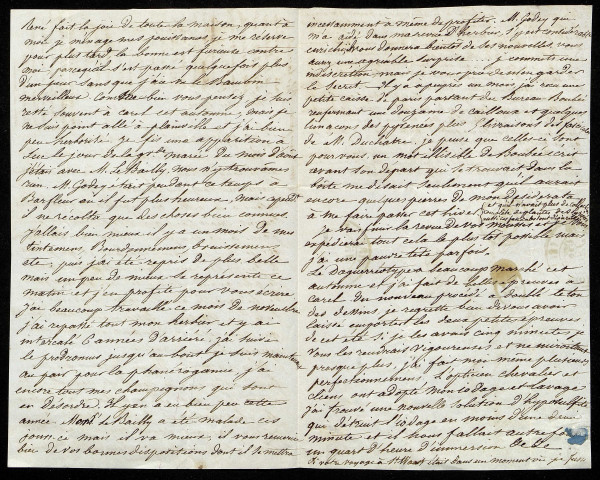 René fait la joie de toute la maison, quant à
moi je ménage mes poustiaux je me réserve
pour plus tard la bonne est furieuse contre
moi parcequ'il s'est passé quelquefois plus
d'un jour sans que j'aie vu le Bambin
merveilleux comme bien vous pensez je suis
resté souvent à carel cet automne, mais je
ne suis point allé à plainville et j'ai bien
peu herborisé je fis une apparition à
Luc le jour de la grde marée du mois d'août
j'étais avec M. le Bailly, nous n'y trouvâmes
rien. M. Godey était pendant ce temps à
Barfleur où il fut plus heureux, mais cependt
il ne récolta que des choses bien connues
j'allais bien mieux il y a un mois de mes
tintements, Bourdonnements bruissements
etc, puis j'ai été repris de plus belle
mais un peu de mieux se représente ce
matin et j'en profite pour vous écrire
j'ai beaucoup travaillé ce mois de novembre
j'ai repassé tout mon herbier et y ai
intercalé 6 années d'arriéré, j'ai suivi
le prodromus jusqu'au bout je suis maintenant
au pair pour la phanérogamie, j'ai
encore tous mes champignons qui sont
en désordre. Il y en a eu bien peu cette
année. Mons le Bailly a été malade ces
jours-ci mais il va mieux, il vous remercie
bien de vos bonnes dispositions dont il se mettra
incessamment à même de profiter. M. Godey qui
m'a aidé dans ma revue d'herbier, s'y est
enrichi, vous donnera bientôt de ses nouvelles, vous
aurez une agréable surprise . . . . je commets une
indiscrétion mais je vous prie de m'en garder
le secret. Il y a à peu près un mois j'ai reçu une
petite caisse de Paris partant du Bureau Boubée
renfermant une douzaine de cailloux et quelques
limaçons des diligences plus livraisons de fossiles
de M. Duchatre. je pense que celles ci sont
pour vous, un mot illisible de Boubée écrit
avant son départ qui se trouvait dans la
boîte me disait seulement qu'il aurait
encore quelques pierres de mon desiderata
à me faire passer cet hiver
je vais finir la revue de vos mousses et je vous
expédierai tout cela le plus tôt possible mais
j'ai une pauvre tête parfois.
Le daguerréotype a beaucoup marché cet
automne et j'ai fait de belles épreuves à
carel. Du nouveau procédé a doublé le ton
des dessins je regrette bien de vous avoir
laissé emporter les deux petites épreuves
de cet été. Si je les avais cinq minutes je
vous les rendrais vigoureuses et ne miroitant
presque plus. j'ai fait moi même plusieurs
perfectionnemens, l'opticien chevalier et
cliens ont adopté mon iodage et lavage
j'ai trouvé une nouvelle solution d'hyposulfite
qui détruit l'iodage en moins d'une demi
minute et il nous fallait autrefois
un quart d'heure d'immersion &c &c
Si votre voyage à St Waast était dans un moment où je fusse